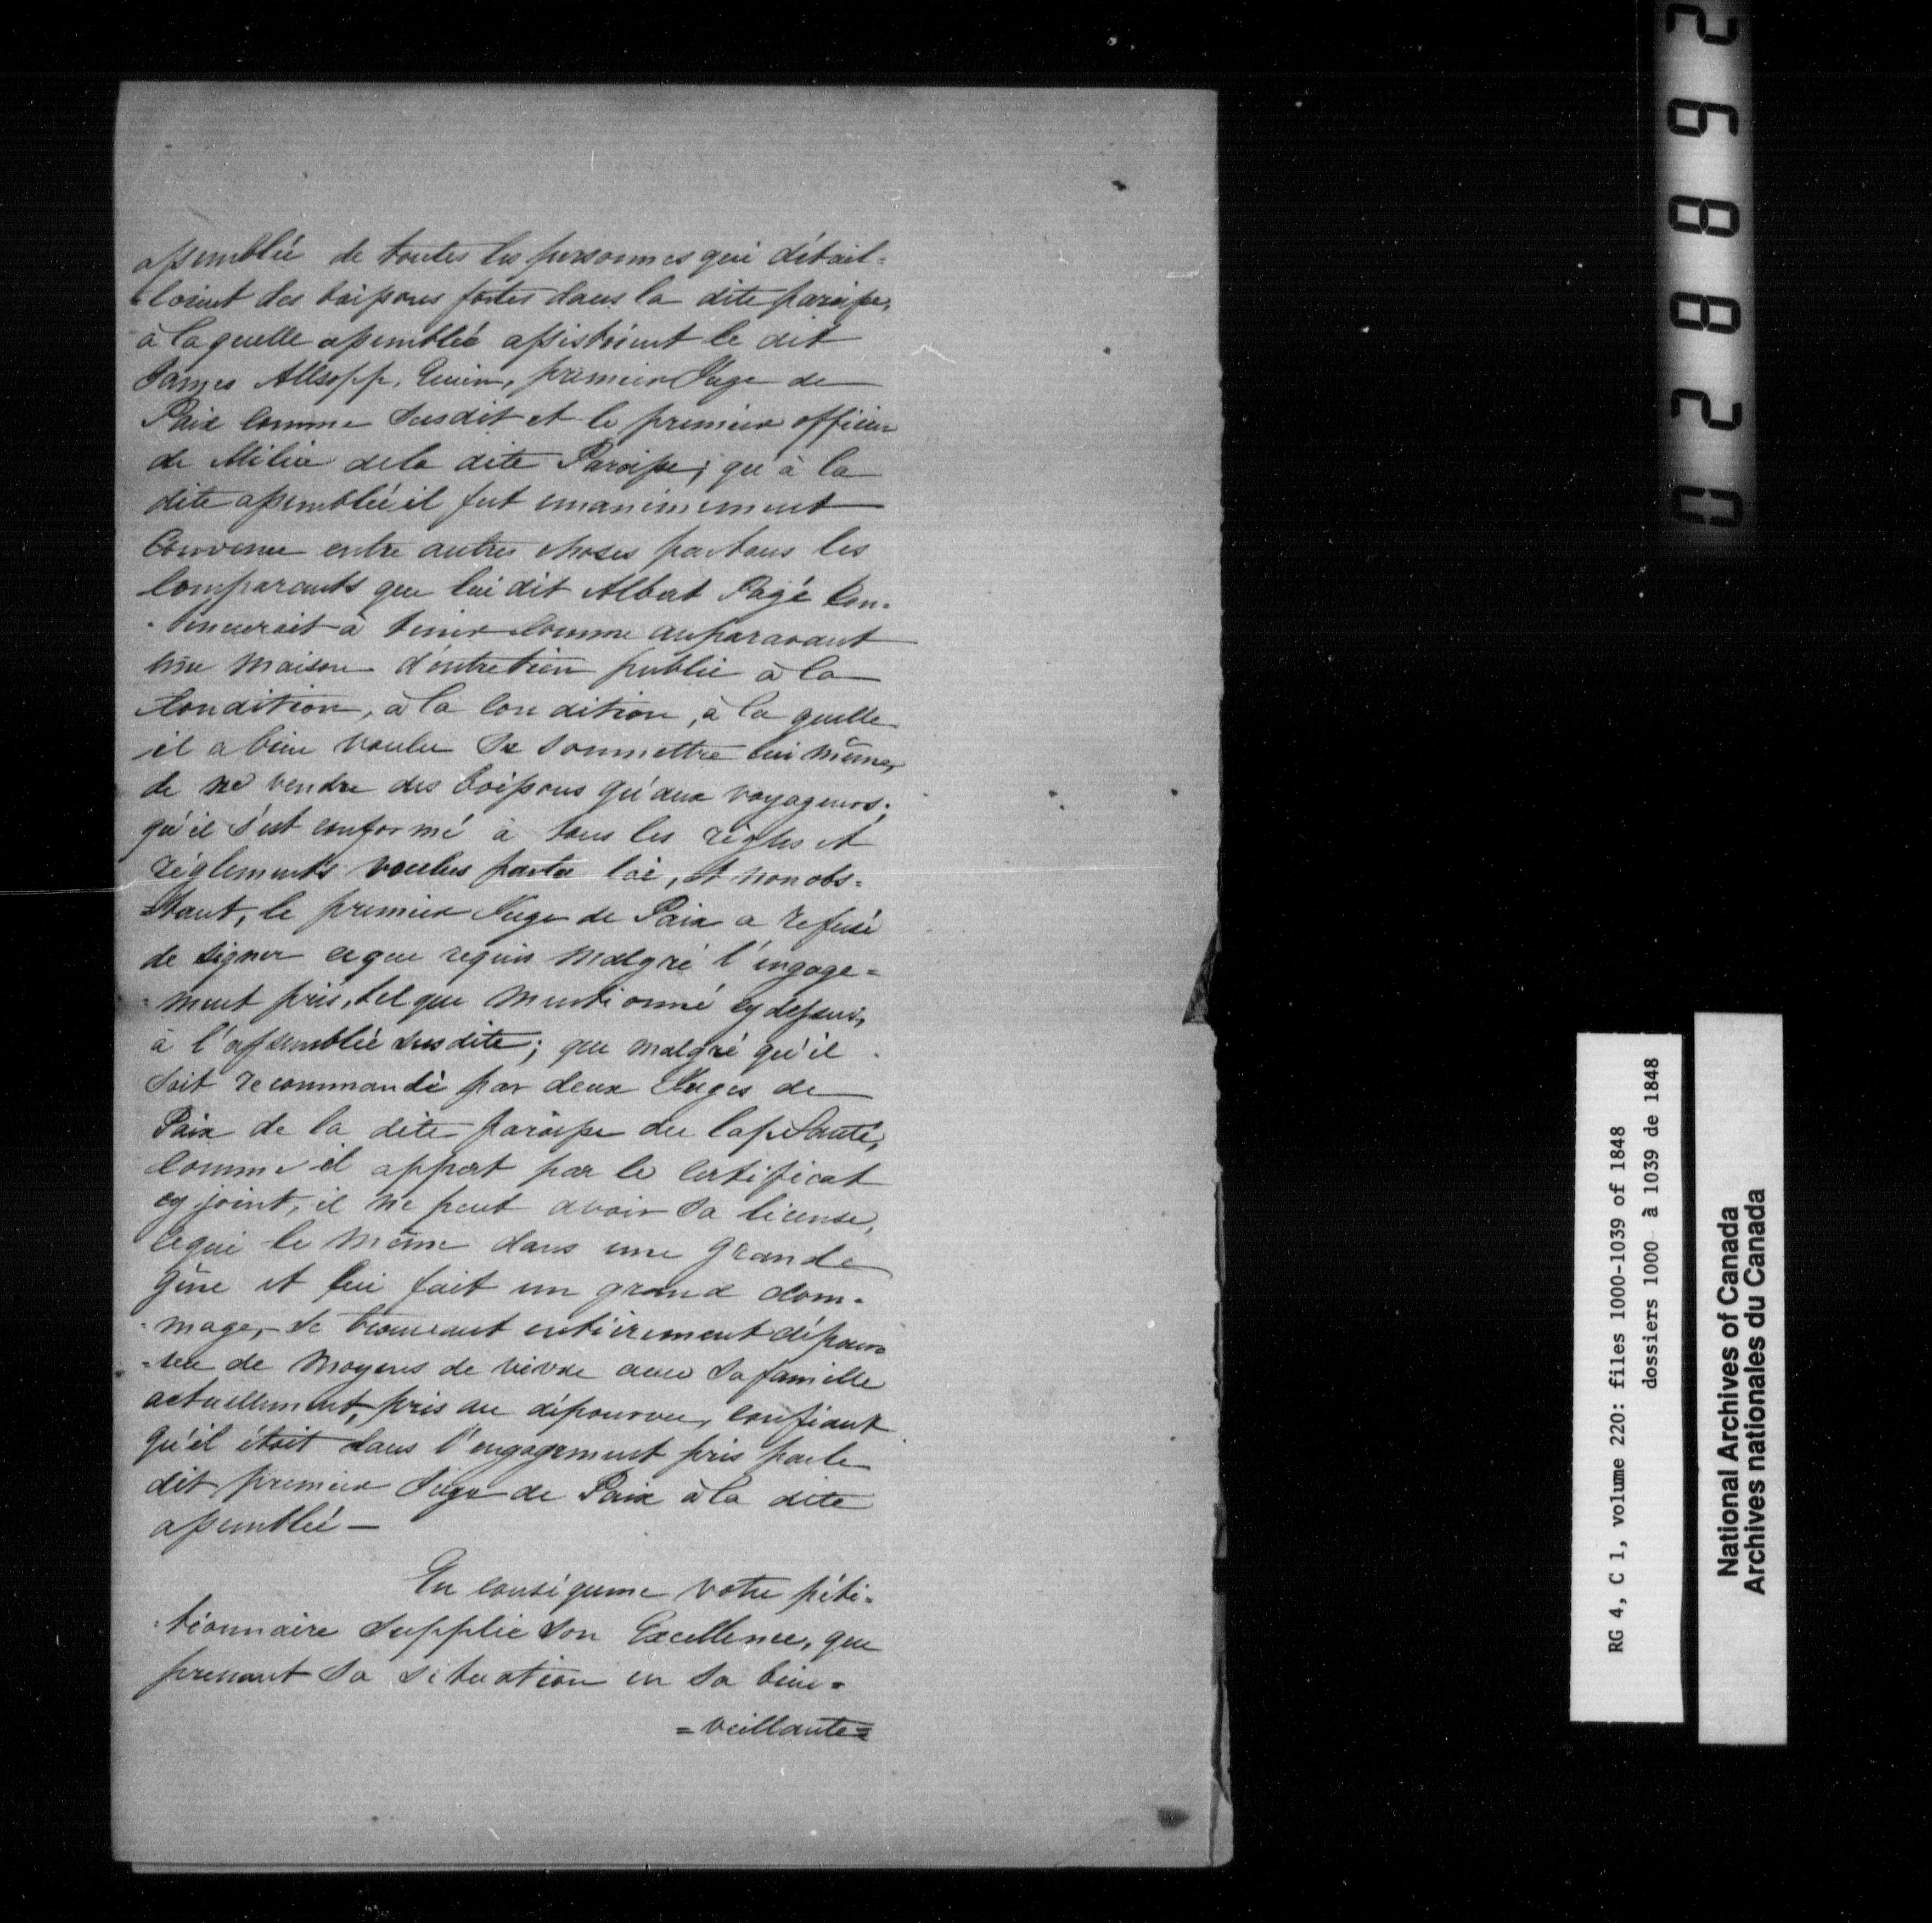 assemblée de toutes les personnes qui détail=
=loient des boissons fortes dans la dite paroisse,
à laquelle assemblée assistoient le dit
James Allsopp, Ecuier, premier Juge de
Paix comme susdit et le premier officier
de Milice de la dite Paroisse; qu'à la
dite assemblée il fut unanimement
Convenu entre autres choses par tous les
Comparants que lui dit Albert Pagé Con-
-tinuerait à tenir comme auparavant
une maison d'entretien public à la
Condition, à la condition, à la quelle
il a bien voulu se soummettre lui même,
de ne vendre des boissons qu'aux voyageurs;
qu'il s'est conformé à tous les règles et
règlements voulus par la loi, et nonobs=
=tant, le premier Juge de Paix a refusé
de signer ce que requis malgré l'engage=
=ment pris, tel que mentionné cy dessus,
à l'assemblée susdite; que malgré qu'il
soit recommandé par deux Juges de
Paix de la dite paroisse du Cap Santé,
comme il appert par le certificat
cy joint, il ne peut avoir sa license,
ce qui le mène dans une grande
gêne et lui fait un grand dom-
-mage, se trouvant entièrement dépour=
=vu de moyens de vivre avec sa famille
actuellement, pris au dépourvu, confiant
qu'il étoit dans l'engagement pris par le
dit premier Juge de Paix à la dite
assemblée —
En conséquence votre péti=
-tionnaire supplie son Excellence, que
prenant sa situation en sa bien=
=veillante=
028892
RG 4, C 1, volume 220: files 1000-1039 of 1848
dossiers 1000 à 1039 de 1848
National Archives of Canada
Archives nationales du Canada